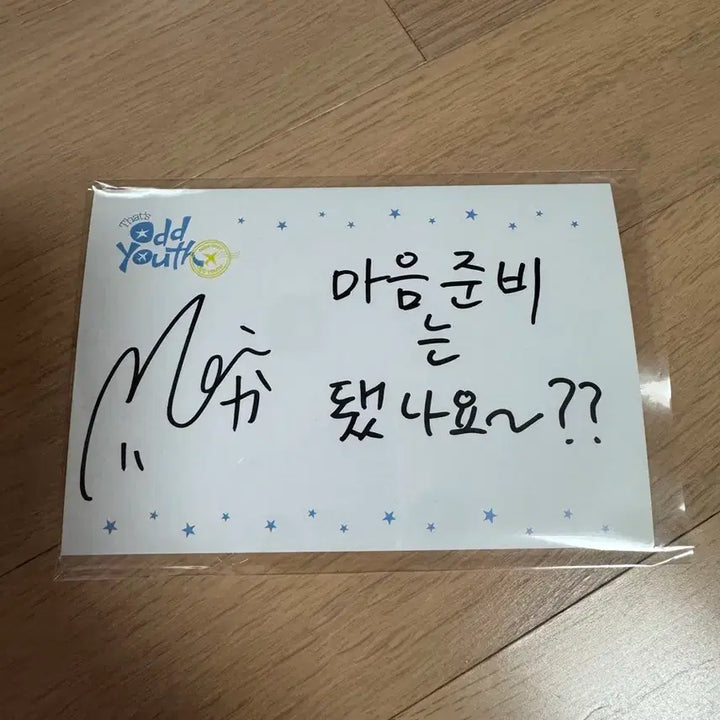 That's
Odd
Youth
마음준비
는
됐나요~??